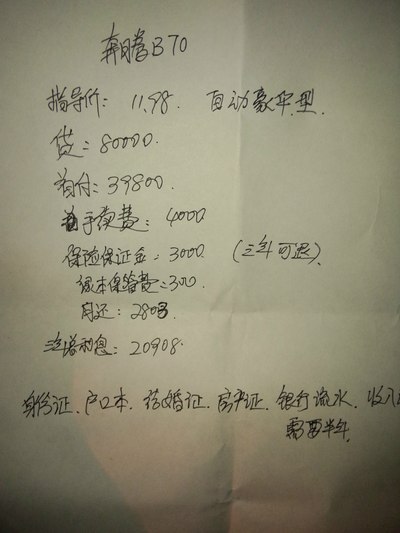 奔腾B70
指导价: 11.98. 自动豪华型.
贷: 80000.
首付: 39800.
手续费: 4000
保险保证金: 3000 (三年可退).
绿本保管费: 300.
月还: 2803.
利息: 20908.
身份证. 户口本. 结婚证. 房产证. 银行流水. 收入
需要半年.